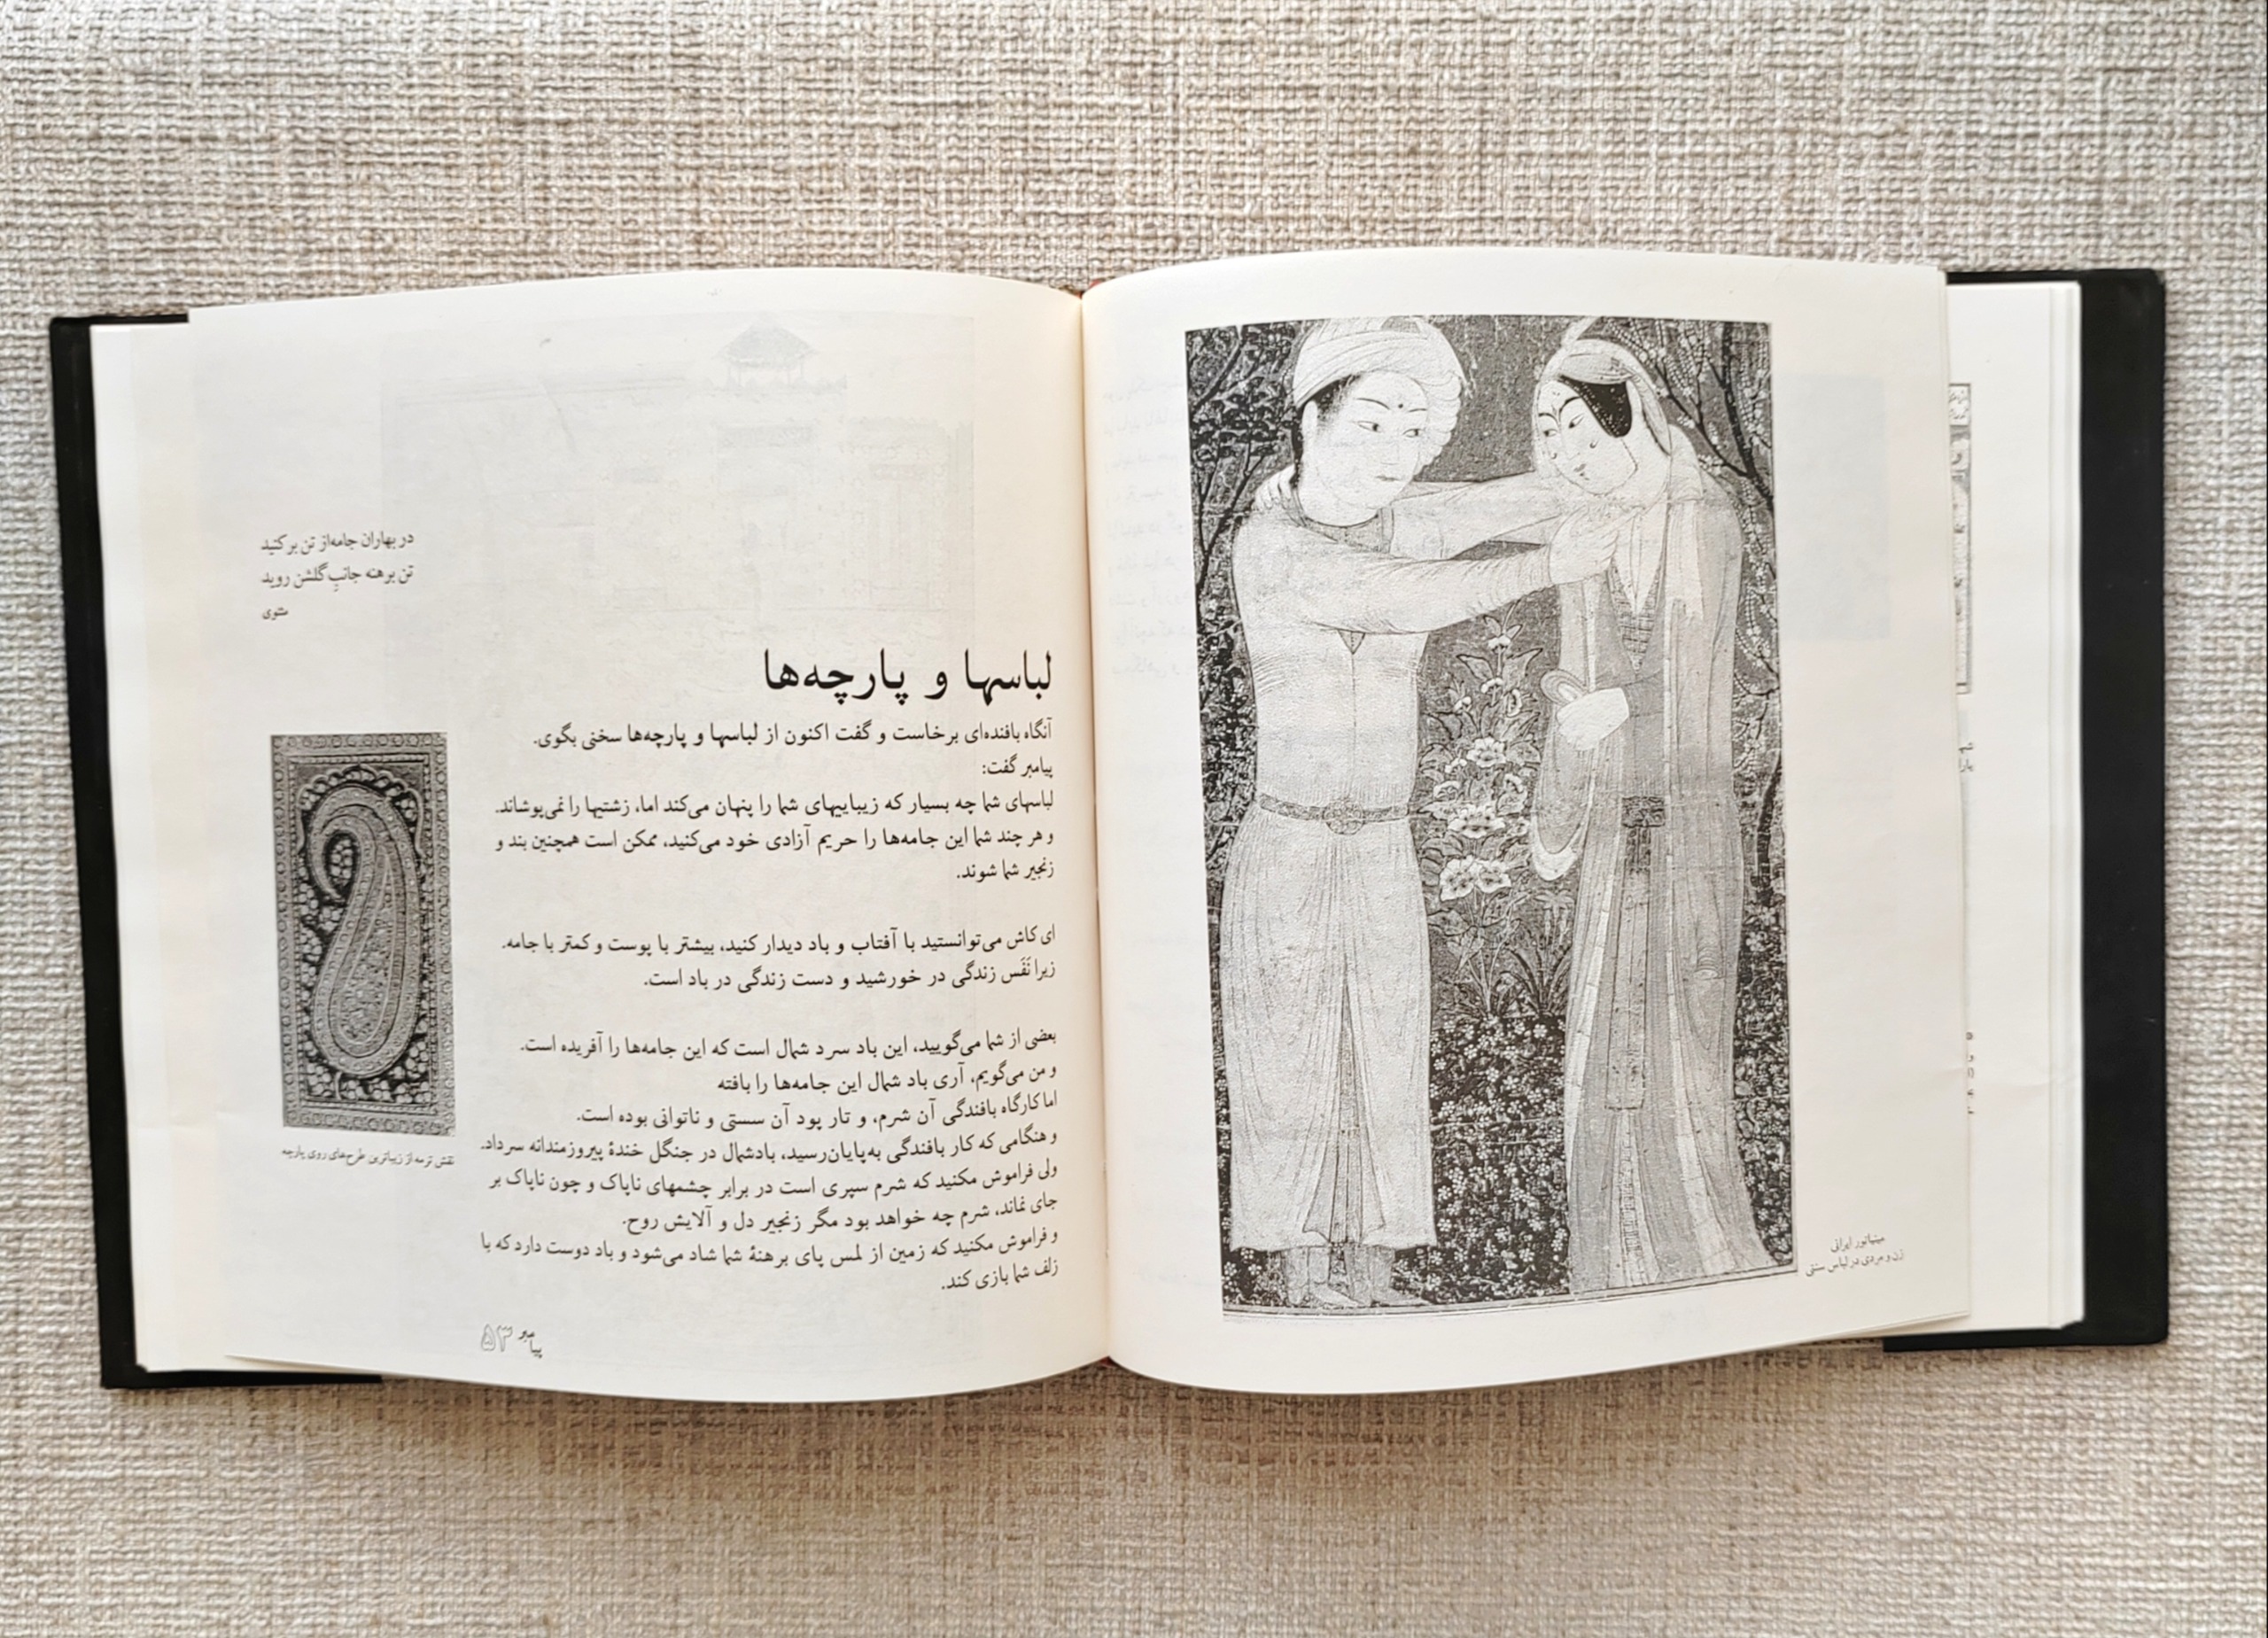 در بهاران جامه‌از تن برکنید
تن برهنه جانبِ گلشن روید
مثنوی
لباسها و پارچه‌ها
آنگاه بافنده‌ای برخاست و گفت اکنون از لباسها و پارچه‌ها سخنی بگوی.
پیامبر گفت:
لباسهای شما چه بسیار که زیباییهای شما را پنهان می‌کند اما، زشتیها را نمی‌پوشاند.
و هر چند شما این جامه‌ها را حریم آزادی خود می‌کنید، ممکن است همچنین بند و
زنجیر شما شوند.
ای کاش می‌توانستید با آفتاب و باد دیدار کنید، بیشتر با پوست و کمتر با جامه.
زیرا نَفَس زندگی در خورشید و دست زندگی در باد است.
بعضی از شما می‌گویید، این باد سرد شمال است که این جامه‌ها را آفریده است.
و من می‌گویم، آری باد شمال این جامه‌ها را بافته
اما کارگاه بافندگی آن شرم، و تار پود آن سستی و ناتوانی بوده است.
و هنگامی که کار بافندگی به‌پایان‌رسید، بادشمال در جنگل خندهٔ پیروزمندانه سرداد.
ولی فراموش مکنید که شرم سپری است در برابر چشمهای ناپاک و چون ناپاک بر
جای نماند، شرم چه خواهد بود مگر زنجیر دل و آلایش روح.
و فراموش مکنید که زمین از لمس پای برهنهٔ شما شاد می‌شود و باد دوست دارد که با
زلف شما بازی کند.
نقش ترمه از زیباترین طرح‌های روی پارچه
پیامبر ۵۳
مینیاتور ایرانی
زن و مردی در لباس سنتی